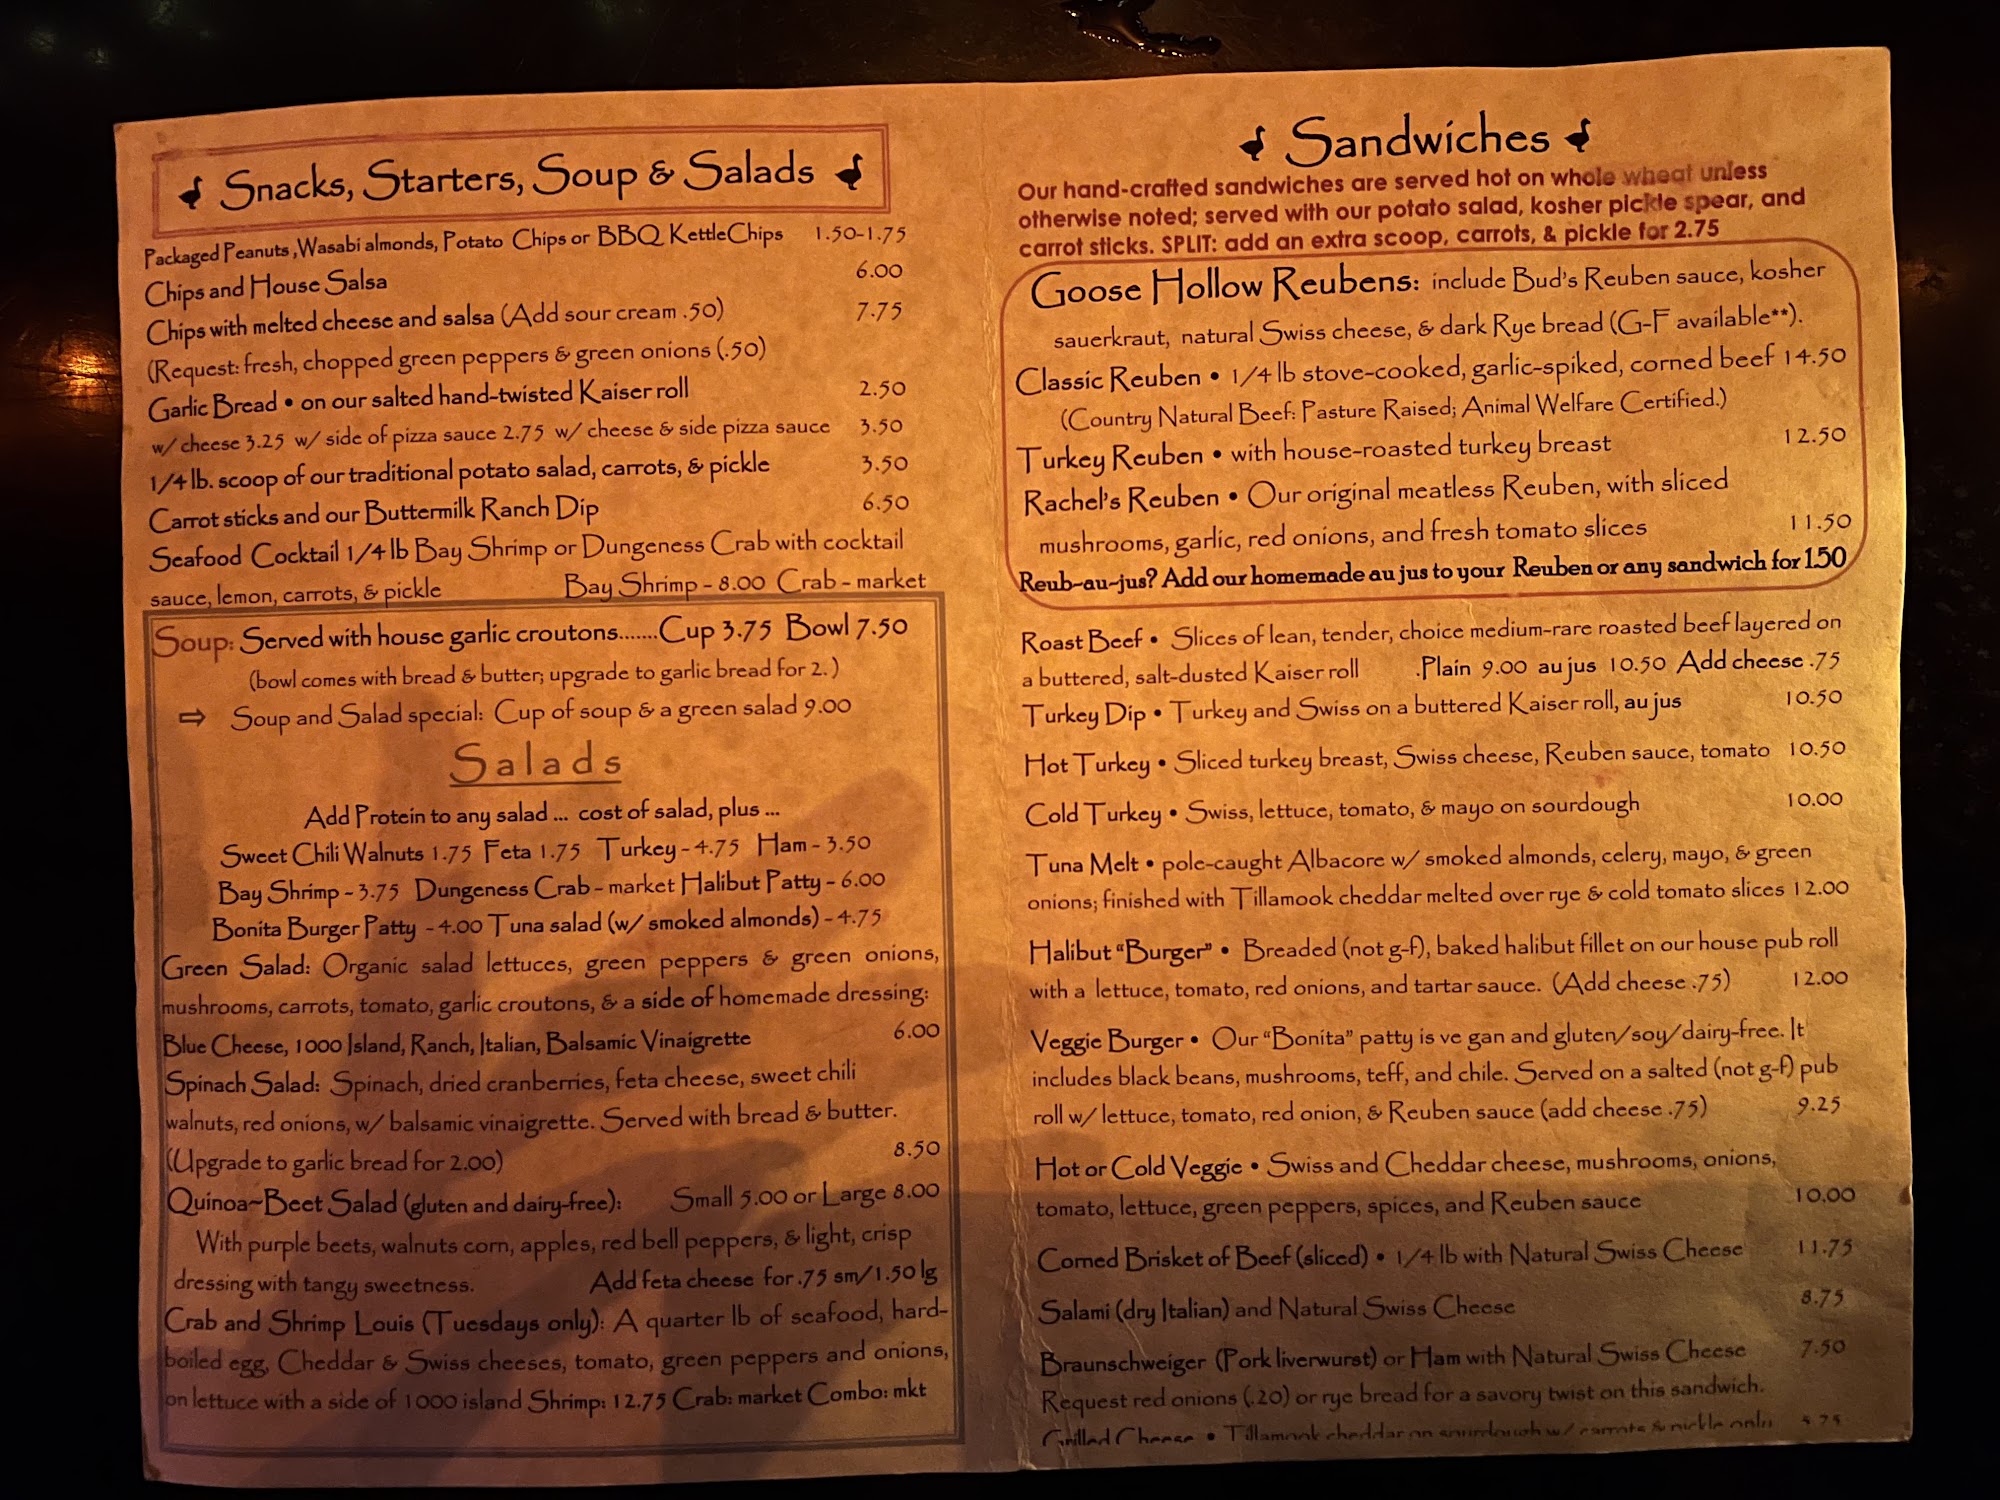 Snacks, Starters, Soup & Salads
Packaged Peanuts ,Wasabi almonds, Potato Chips or BBQ KettleChips 1.50-1.75
Chips and House Salsa 6.00
Chips with melted cheese and salsa (Add sour cream .50) 7.75
(Request: fresh, chopped green peppers & green onions (.50)
Garlic Bread • on our salted hand-twisted Kaiser roll 2.50
w/ cheese 3.25 w/ side of pizza sauce 2.75 w/ cheese & side pizza sauce 3.50
1/4 lb. scoop of our traditional potato salad, carrots, & pickle 3.50
Carrot sticks and our Buttermilk Ranch Dip 6.50
Seafood Cocktail 1/4 lb Bay Shrimp or Dungeness Crab with cocktail
sauce, lemon, carrots, & pickle Bay Shrimp - 8.00 Crab - market
Soup: Served with house garlic croutons.......Cup 3.75 Bowl 7.50
(bowl comes with bread & butter; upgrade to garlic bread for 2. )
⇨ Soup and Salad special: Cup of soup & a green salad 9.00
Salads
Add Protein to any salad ... cost of salad, plus ...
Sweet Chili Walnuts 1.75 Feta 1.75 Turkey - 4.75 Ham - 3.50
Bay Shrimp - 3.75 Dungeness Crab - market Halibut Patty - 6.00
Bonita Burger Patty - 4.00 Tuna salad (w/ smoked almonds) - 4.75
Green Salad: Organic salad lettuces, green peppers & green onions,
mushrooms, carrots, tomato, garlic croutons, & a side of homemade dressing:
Blue Cheese, 1000 Island, Ranch, Italian, Balsamic Vinaigrette 6.00
Spinach Salad: Spinach, dried cranberries, feta cheese, sweet chili
walnuts, red onions, w/ balsamic vinaigrette. Served with bread & butter.
(Upgrade to garlic bread for 2.00) 8.50
Quinoa~Beet Salad (gluten and dairy-free): Small 5.00 or Large 8.00
With purple beets, walnuts corn, apples, red bell peppers, & light, crisp
dressing with tangy sweetness. Add feta cheese for .75 sm/1.50 lg
Crab and Shrimp Louis (Tuesdays only): A quarter lb of seafood, hard-
boiled egg, Cheddar & Swiss cheeses, tomato, green peppers and onions,
on lettuce with a side of 1000 island Shrimp: 12.75 Crab: market Combo: mkt
Sandwiches
Our hand-crafted sandwiches are served hot on whole wheat unless
otherwise noted; served with our potato salad, kosher pickle spear, and
carrot sticks. SPLIT: add an extra scoop, carrots, & pickle for 2.75
Goose Hollow Reubens: include Bud's Reuben sauce, kosher
sauerkraut, natural Swiss cheese, & dark Rye bread (G-F available**).
Classic Reuben • 1/4 lb stove-cooked, garlic-spiked, corned beef 14.50
(Country Natural Beef: Pasture Raised; Animal Welfare Certified.)
Turkey Reuben • with house-roasted turkey breast 12.50
Rachel's Reuben • Our original meatless Reuben, with sliced
mushrooms, garlic, red onions, and fresh tomato slices 11.50
Reub-au-jus? Add our homemade au jus to your Reuben or any sandwich for 1.50
Roast Beef • Slices of lean, tender, choice medium-rare roasted beef layered on
a buttered, salt-dusted Kaiser roll .Plain 9.00 au jus 10.50 Add cheese .75
Turkey Dip • Turkey and Swiss on a buttered Kaiser roll, au jus 10.50
Hot Turkey • Sliced turkey breast, Swiss cheese, Reuben sauce, tomato 10.50
Cold Turkey • Swiss, lettuce, tomato, & mayo on sourdough 10.00
Tuna Melt • pole-caught Albacore w/ smoked almonds, celery, mayo, & green
onions; finished with Tillamook cheddar melted over rye & cold tomato slices 12.00
Halibut "Burger" • Breaded (not g-f), baked halibut fillet on our house pub roll
with a lettuce, tomato, red onions, and tartar sauce. (Add cheese .75) 12.00
Veggie Burger • Our "Bonita" patty is ve gan and gluten/soy/dairy-free. It
includes black beans, mushrooms, teff, and chile. Served on a salted (not g-f) pub
roll w/ lettuce, tomato, red onion, & Reuben sauce (add cheese .75) 9.25
Hot or Cold Veggie • Swiss and Cheddar cheese, mushrooms, onions,
tomato, lettuce, green peppers, spices, and Reuben sauce 10.00
Corned Brisket of Beef (sliced) • 1/4 lb with Natural Swiss Cheese 11.75
Salami (dry Italian) and Natural Swiss Cheese 8.75
Braunschweiger (Pork liverwurst) or Ham with Natural Swiss Cheese 7.50
Request red onions (.20) or rye bread for a savory twist on this sandwich.
Grilled Cheese • Tillamook cheddar on sourdough w/ carrots & pickle only